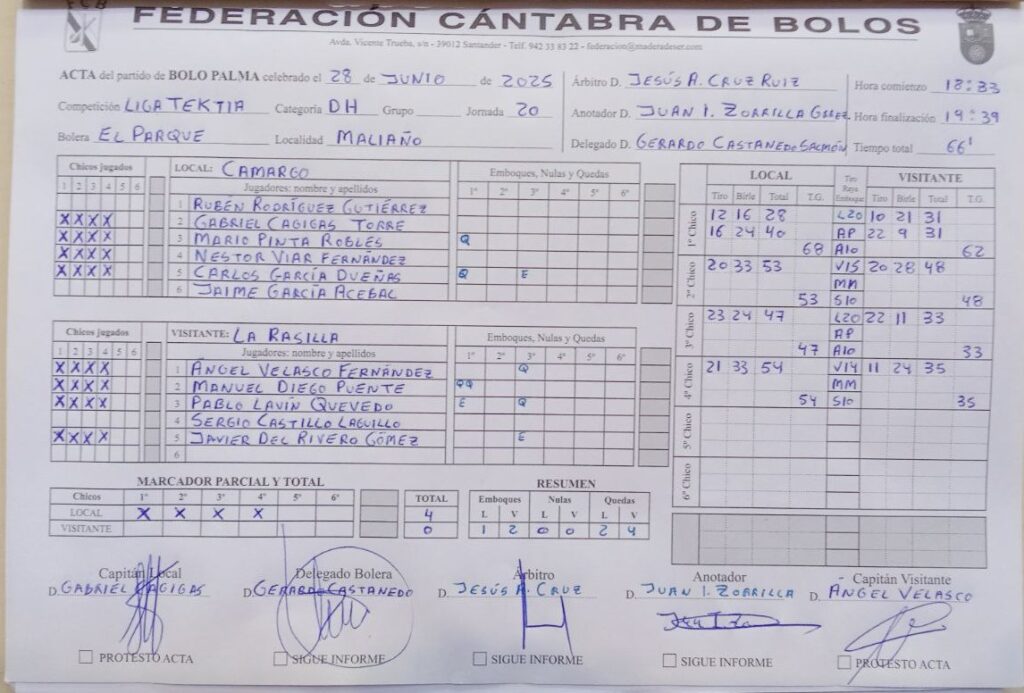 FCB
FEDERACIÓN CÁNTABRA DE BOLOS
Avda. Vicente Trueba, s/n - 39012 Santander - Telf. 942 33 83 22 - federacion@maderadeser.com
ACTA del partido de BOLO PALMA celebrado el 28 de JUNIO de 2025
Competición LIGA TEKTIA Categoría DH Grupo Jornada 20
Bolera EL PARQUE Localidad MALIAÑO
Árbitro D. JESÚS A. CRUZ RUIZ
Anotador D. JUAN I. ZORRILLA
Delegado D. GERARDO CASTANEDO SALMÓN
Hora comienzo 18:33
Hora finalización 19:39
Tiempo total 66'
Chicos jugados LOCAL: CAMARGO Emboques, Nulas y Quedas
1 2 3 4 5 6 Jugadores: nombre y apellidos 1º 2º 3º 4º 5º 6º
1 RUBÉN RODRÍGUEZ GUTIÉRREZ
X X X X 2 GABRIEL CAGIGAS TORRE
X X X X 3 MARIO PINTA ROBLES Q
X X X X 4 NESTOR VIAR FERNÁNDEZ
X X X X 5 CARLOS GARCÍA DUEÑAS Q E
6 JAIME GARCÍA ACEBAL
Chicos jugados VISITANTE: LA RASILLA Emboques, Nulas y Quedas
1 2 3 4 5 6 Jugadores: nombre y apellidos 1º 2º 3º 4º 5º 6º
X X X X 1 ÁNGEL VELASCO FERNÁNDEZ Q
X X X X 2 MANUEL DIEGO PUENTE QQ
X X X X 3 PABLO LAVÍN QUEVEDO E Q
4 SERGIO CASTILLO LAGUILLO
X X X X 5 JAVIER DEL RIVERO GÓMEZ E
6
LOCAL Tiro Raya Emboque VISITANTE
Tiro Birle Total T.G. Tiro Birle Total T.G.
1º Chico 12 16 28 L20 10 21 31
16 24 40 AP 22 9 31
68 A10 62
2º Chico 20 33 53 V15 20 28 48
MM
53 S10 48
3º Chico 23 24 47 L20 22 11 33
AP
47 A10 33
4º Chico 21 33 54 V14 11 24 35
MM
54 S10 35
5º Chico
6º Chico
MARCADOR PARCIAL Y TOTAL
Chicos 1º 2º 3º 4º 5º 6º TOTAL
LOCAL X X X X 4
VISITANTE 0
RESUMEN
Emboques Nulas Quedas
L V L V L V
1 2 0 0 2 4
Capitán Local Delegado Bolera Árbitro Anotador Capitán Visitante
D. GABRIEL CAGIGAS D. GERARDO CASTANEDO D. JESÚS A. CRUZ D. JUAN I. ZORRILLA D. ÁNGEL VELASCO
PROTESTO ACTA SIGUE INFORME SIGUE INFORME SIGUE INFORME PROTESTO ACTA